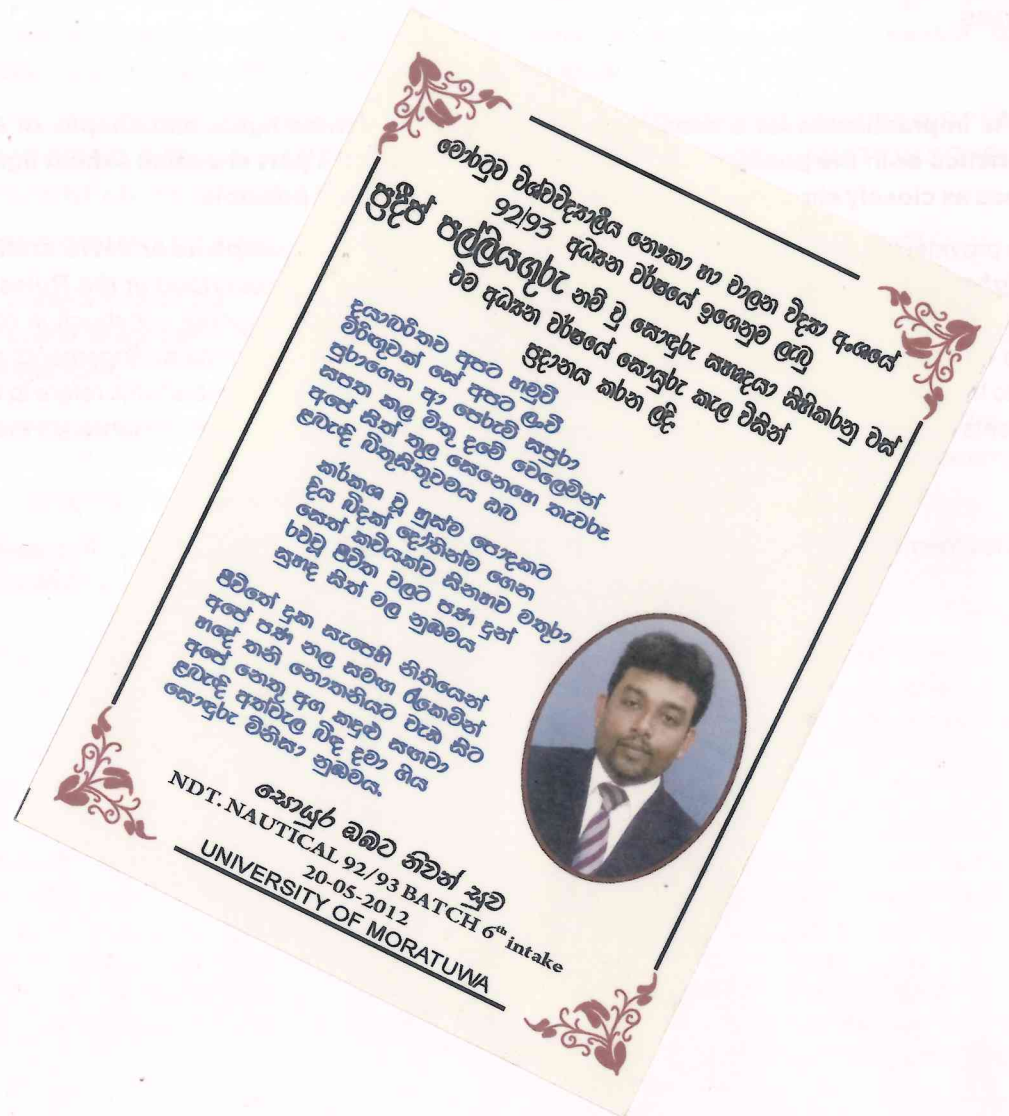 මොරටුව විශ්වවිද්‍යාලීය නෞකා හා චාලන විද්‍යා අංශයේ
92/93 අධ්‍යන වර්ෂයේ ඉගෙනුම ලැබූ
ප්‍රදීප් පල්ලියගුරු නම් වු සොඳුරු සහෘදයා සිහිකරනු වස්
එම අධ්‍යන වර්ෂයේ සොයුරු කැල විසින්
ප්‍රදානය කරන ලදි
දයාබරිතව අපට හමුවී
මිරිඟුවක් සේ අපට ලංවී
පුරාගෙන ආ පෙරුම් සපුරා
සපත කල මිතු දමේ වෙලෙමින්
අපේ සිත් තුල සෙනෙහෙ තැවරූ
ළබැඳි මිතුසිතුවමය ඔබ
කර්කශ වූ හුස්ම පොදකට
දිය බිඳක් දෝතින්ම ගෙන
සෙත් කවියක්ව සිනහව මතුරා
රටවූ ජීවිත වලට පණ දුන්
සුහද සිත් මල නුඹමය
ජීවිතේ දුක සැපෙහි නිතියෙන්
අපේ පණ නල සමඟ රැකෙමින්
හදේ තනි නොතනියට වැඩ සිට
අපේ නෙතු අග කඳුළු සඟවා
ළබැඳි අත්වැල බිඳ දමා ගිය
සොඳුරු මිනිසා නුඹමය.
සොයුර ඔබට නිවන් සුව
NDT. NAUTICAL 92/93 BATCH 6th intake
20-05-2012
UNIVERSITY OF MORATUWA